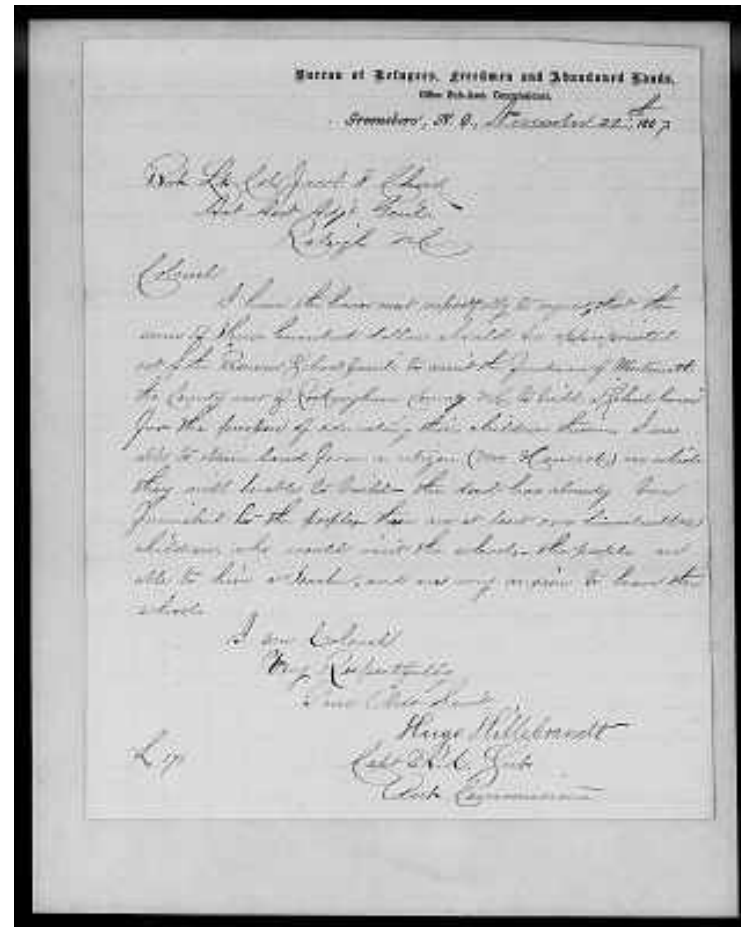 Bureau of Refugees, Freedmen and Abandoned Lands,
Office Sub-Asst. Commissioner,
Greensboro', N. C., November 22 1867
Col Jacob F. Chur
Act Asst Adjt Genl
Raleigh N.C.
Colonel
I have the honor most respectfully to request, that the
sum of three hundred dollars should be appropriated
out of the School fund to assist the freedmen of Wentworth
the County seat of Rockingham County N.C. to build a School house
for the purpose of educating their children there. I was
able to obtain land from a citizen (Mr ) on which
they will be able to build the has already been
furnished by the people, there are at least one hundred
children who would visit the school, the people are
able to hire a teacher, and are very anxious to have the
school.
I am Colonel
Very Respectfully
Your Obdt Servt
Hugo Hillebrandt
L 171
Sub
Asst Commissioner